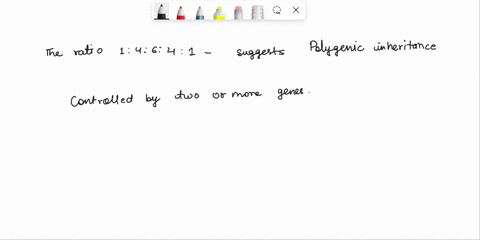 The ratio 1:4:6:4:1 - suggests Polygenic inheritance
Controlled by two or more genes.